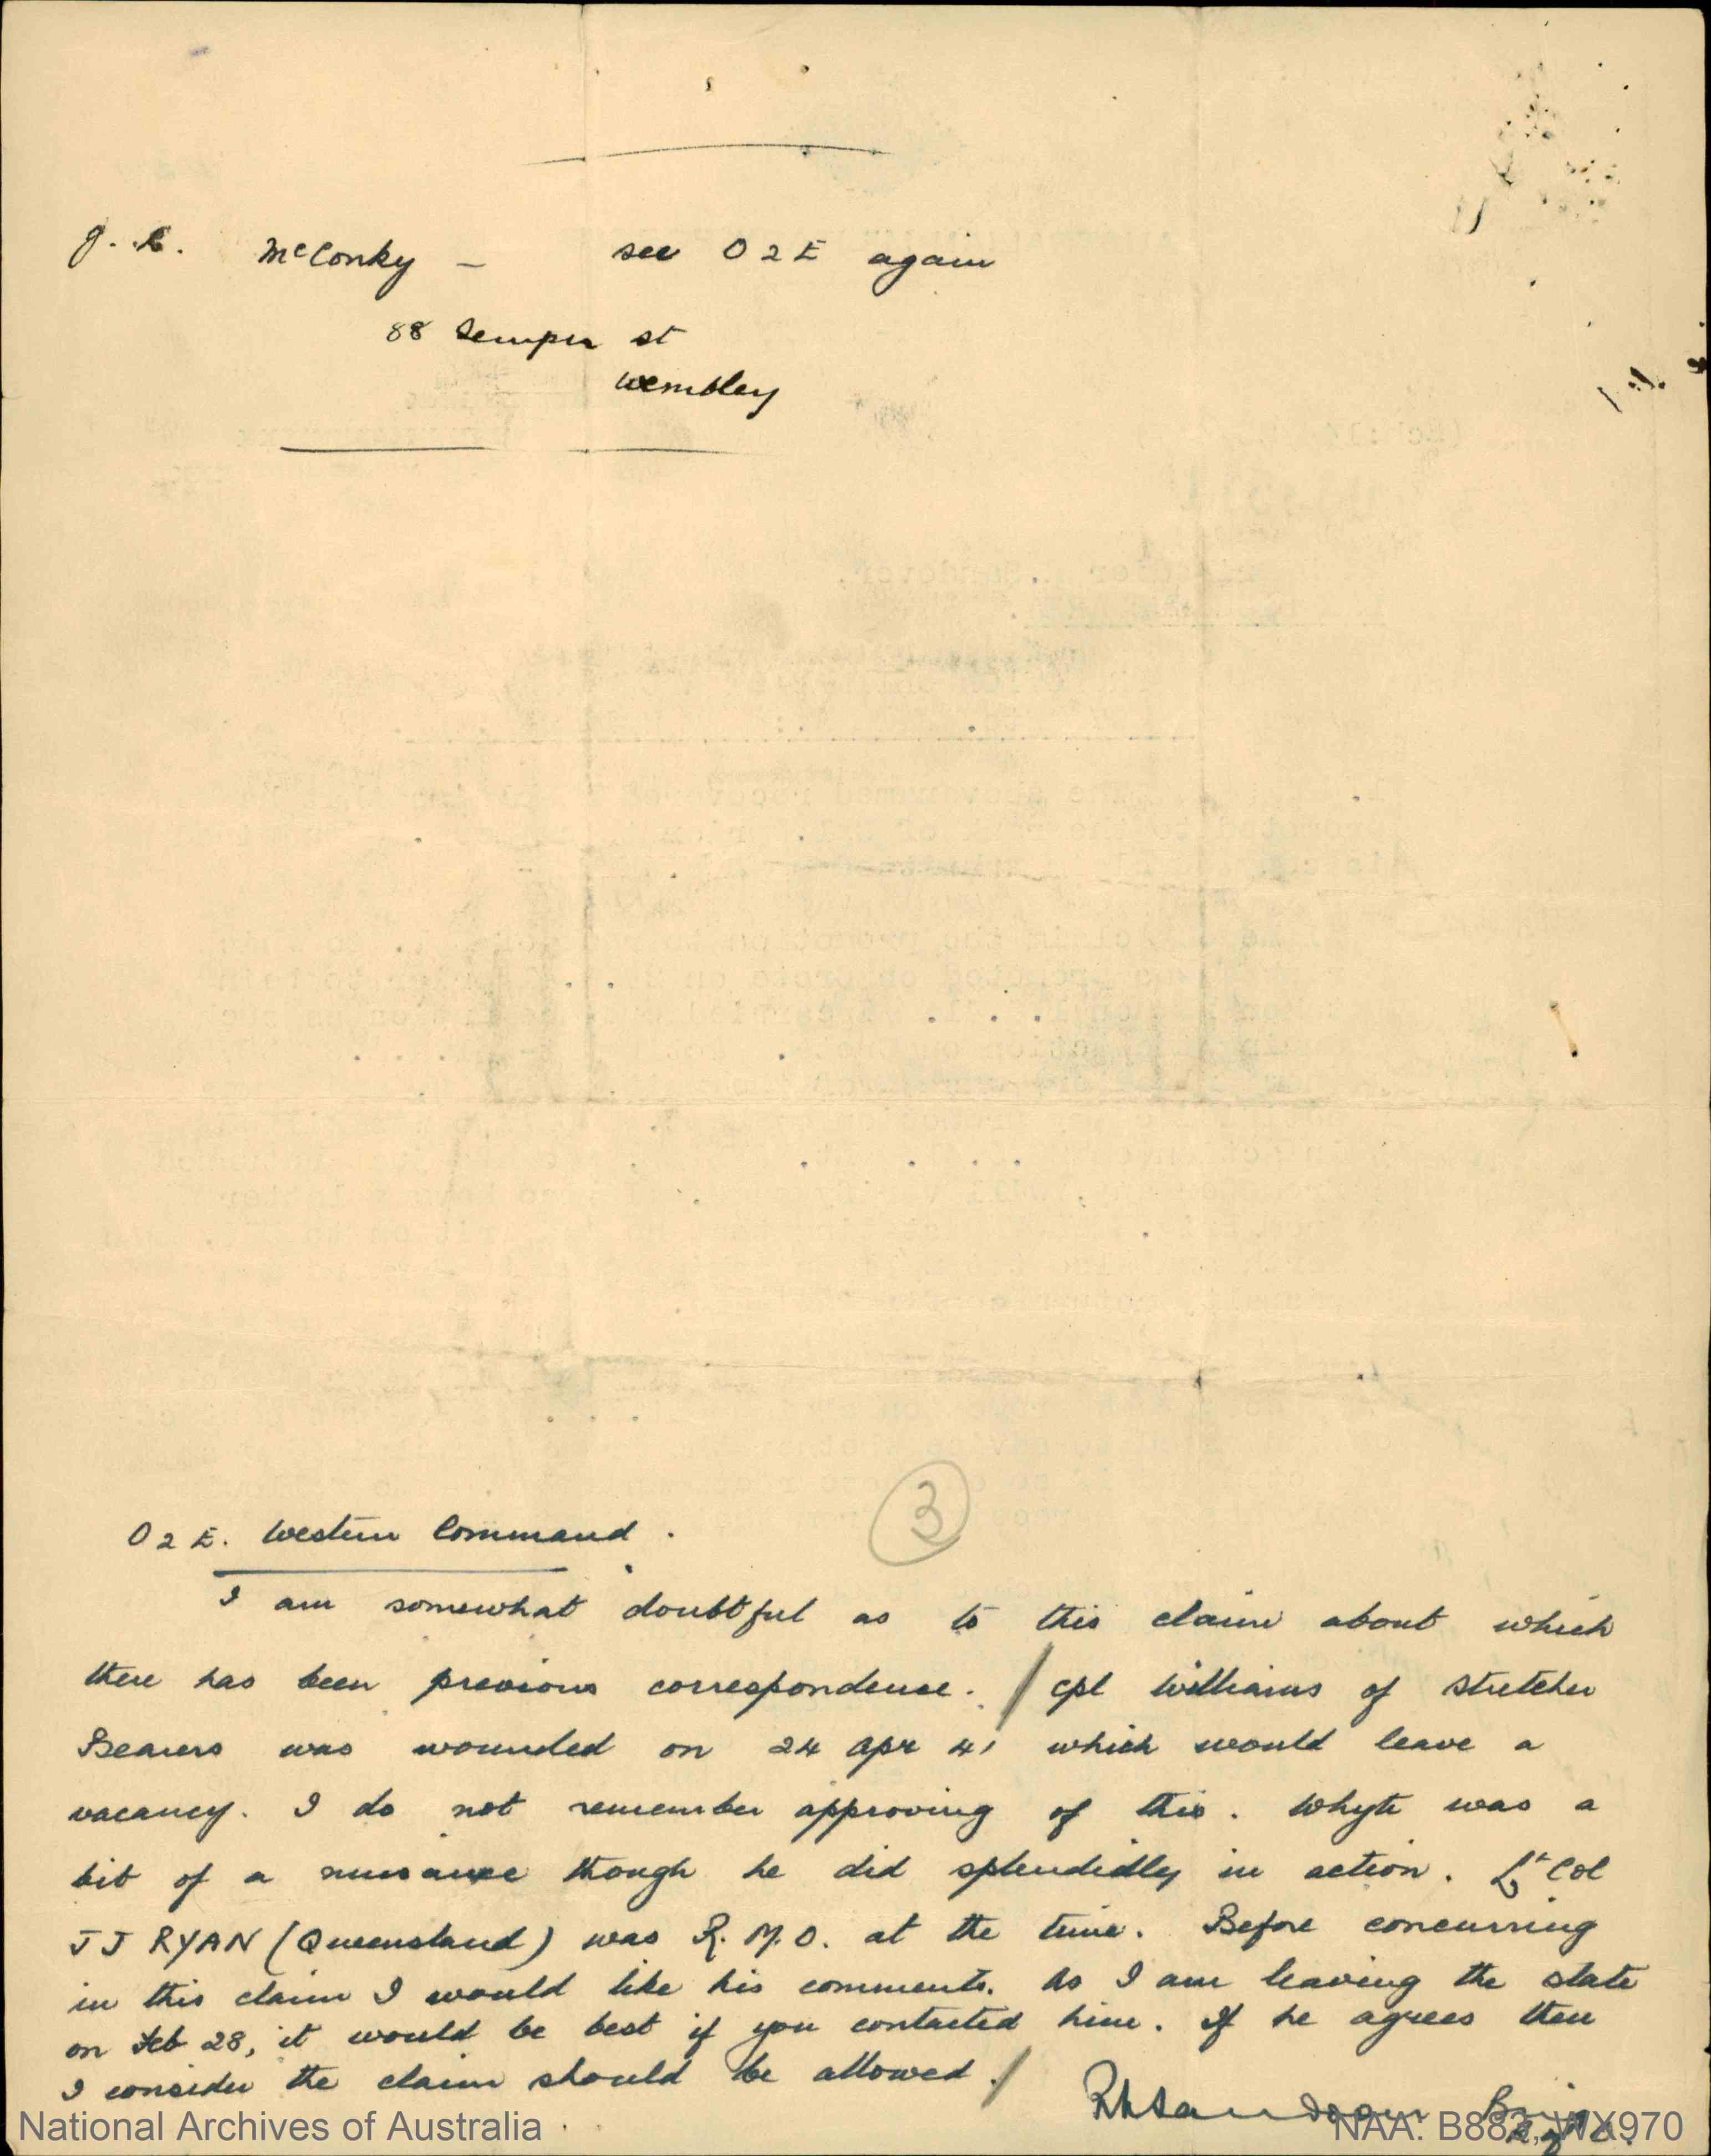 J. C. McConky - see O2E again
88 Semper st
Wembley
3
O2E. Western Command.
I am somewhat doubtful as to this claim about which
there has been previous correspondence. / Cpl Williams of Stretcher
Bearers was wounded on 24 Apr 41 which would leave a
vacancy. I do not remember approving of this. Whyte was a
bit of a nuisance though he did splendidly in action. Lt Col
JJ RYAN (Queensland) was R.M.O. at the time. Before concurring
in this claim I would like his comments. As I am leaving the state
on Feb 28, it would be best if you contacted him. If he agrees then
I consider the claim should be allowed. /
Brig
National Archives of Australia
NAA: B883, WX970